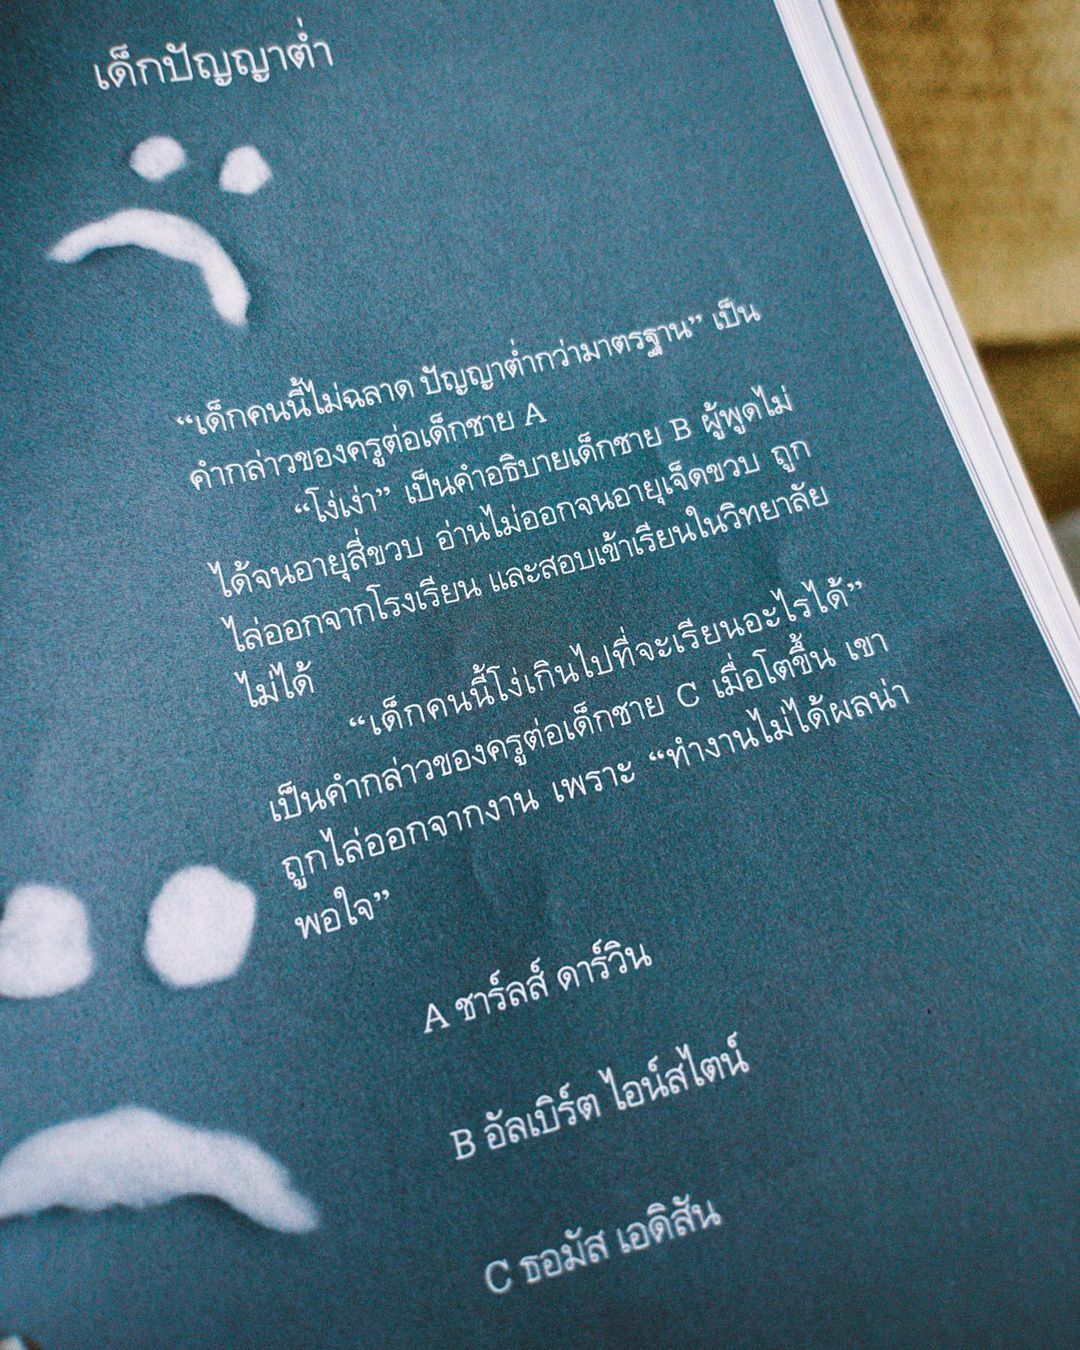 เด็กปัญญาต่ำ
“เด็กคนนี้ไม่ฉลาด ปัญญาต่ำกว่ามาตรฐาน” เป็น
คำกล่าวของครูต่อเด็กชาย A
“โง่เง่า” เป็นคำอธิบายเด็กชาย B ผู้พูดไม่
ได้จนอายุสี่ขวบ อ่านไม่ออกจนอายุเจ็ดขวบ ถูก
ไล่ออกจากโรงเรียน และสอบเข้าเรียนในวิทยาลัย
ไม่ได้
“เด็กคนนี้โง่เกินไปที่จะเรียนอะไรได้”
เป็นคำกล่าวของครูต่อเด็กชาย C เมื่อโตขึ้น เขา
ถูกไล่ออกจากงาน เพราะ “ทำงานไม่ได้ผลน่า
พอใจ”
A ชาร์ลส์ ดาร์วิน
B อัลเบิร์ต ไอน์สไตน์
C ธอมัส เอดิสัน